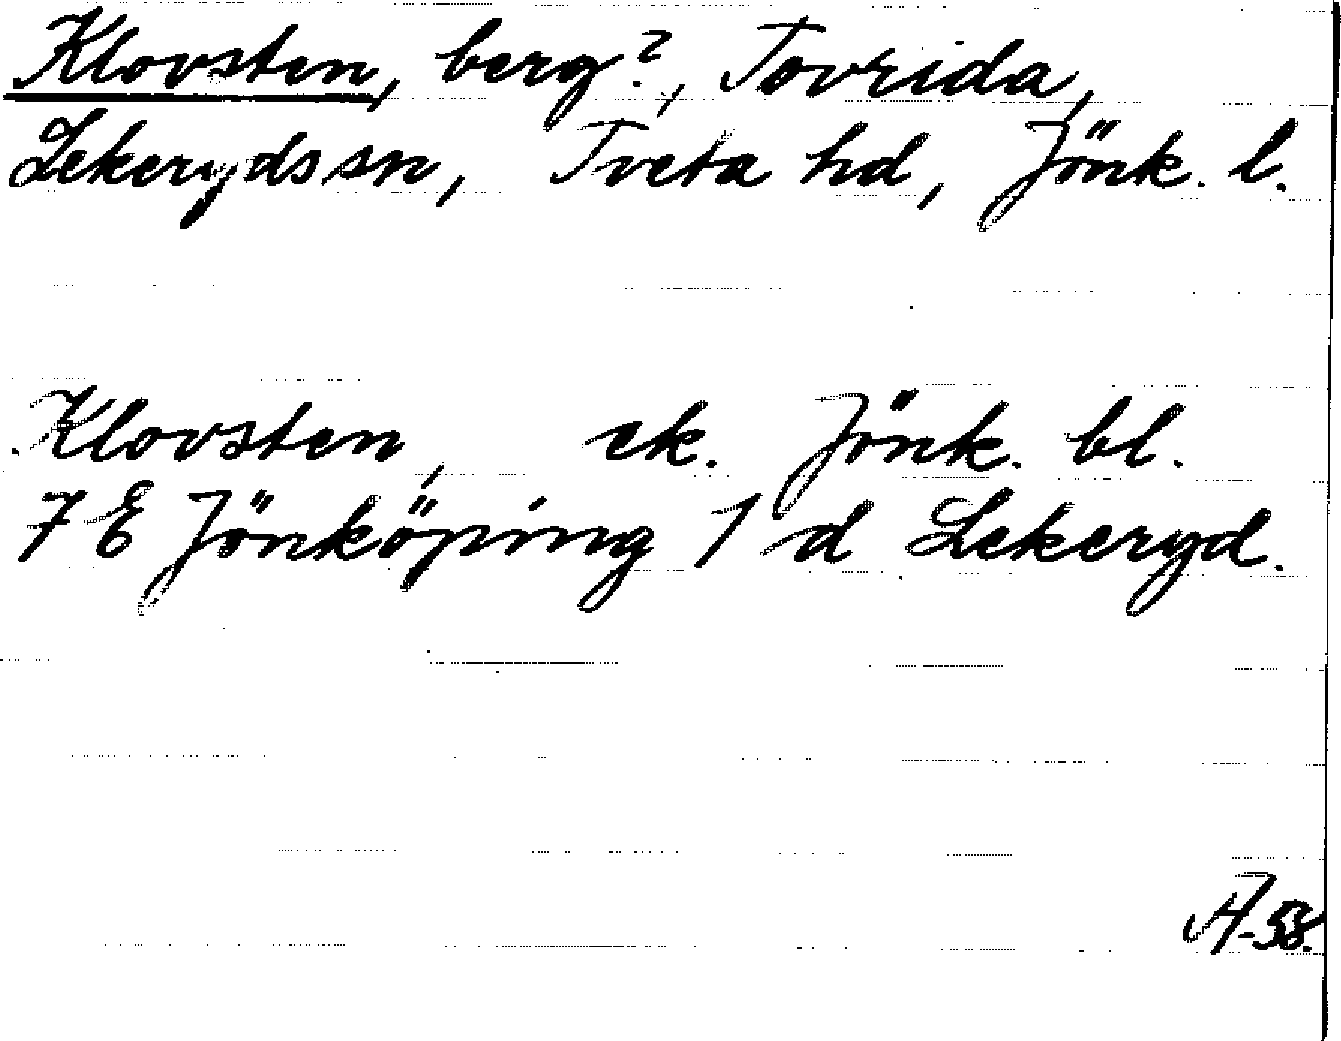 Klovsten, berg?, Tovrida,
Lekerydssn, Tveta hd, Jönk. l.
Klovsten, ek. Jönk. bl.
7 E Jönköping 1 d Lekeryd.
A-53.